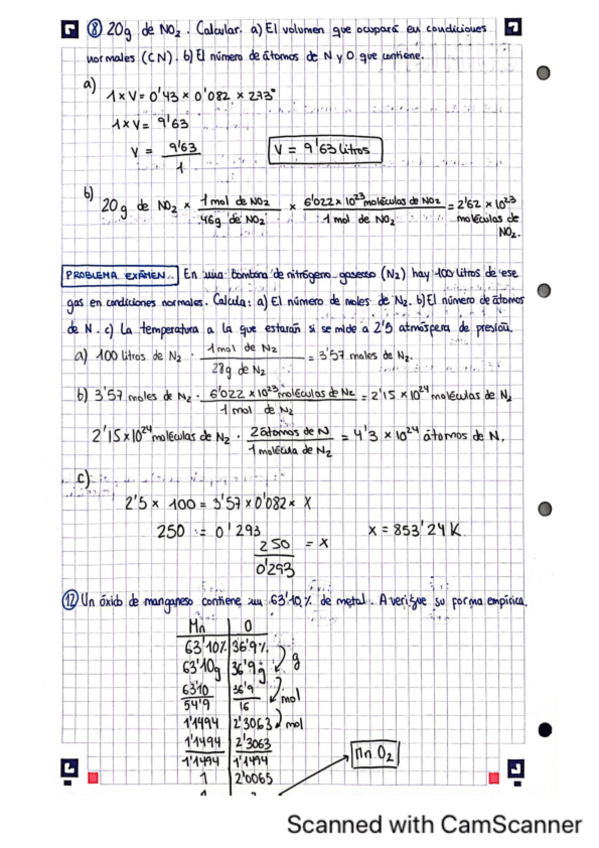 ⑧ 20g de NO₂. Calcular. a) El volumen que ocupará en condiciones
normales (CN). b) El número de átomos de N y O que contiene.
a)
1 x V = 0'43 x 0'082 x 273°
1 x V = 9'63
V = 9'63 / 1
V = 9'63 litros
b)
20g de NO₂ x 1 mol de NO₂ / 46g de NO₂ x 6'022 x 10²³ moléculas de NO₂ / 1 mol de NO₂ = 2'62 x 10²³
moléculas de
NO₂.
PROBLEMA EXÁMEN.. En una bombona de nitrógeno gaseoso (N₂) hay 100 litros de ese
gas en condiciones normales. Calcula: a) El número de moles de N₂. b) El número de átomos
de N. c) La temperatura a la que estarán si se mide a 2'5 atmósfera de presión.
a) 100 litros de N₂ · 1 mol de N₂ / 28g de N₂ = 3'57 moles de N₂.
b) 3'57 moles de N₂ · 6'022 x 10²³ moléculas de N₂ / 1 mol de N₂ = 2'15 x 10²⁴ moléculas de N₂
2'15 x 10²⁴ moléculas de N₂ · 2 átomos de N / 1 molécula de N₂ = 4'3 x 10²⁴ átomos de N.
c)
2'5 x 100 = 3'57 x 0'082 x X
250 = 0'293
250 / 0'293 = x
x = 853'24 K
⑫ Un óxido de manganeso contiene un 63'10% de metal. Averigüe su forma empírica.
Mn | O
63'10% | 36'9%
63'10g | 36'9g
g
63'10 / 54'9 | 36'9 / 16
mol
1'1494 | 2'3063
mol
1'1494 / 1'1494 | 2'3063 / 1'1494
1 | 2'0065
Mn O₂
Scanned with CamScanner